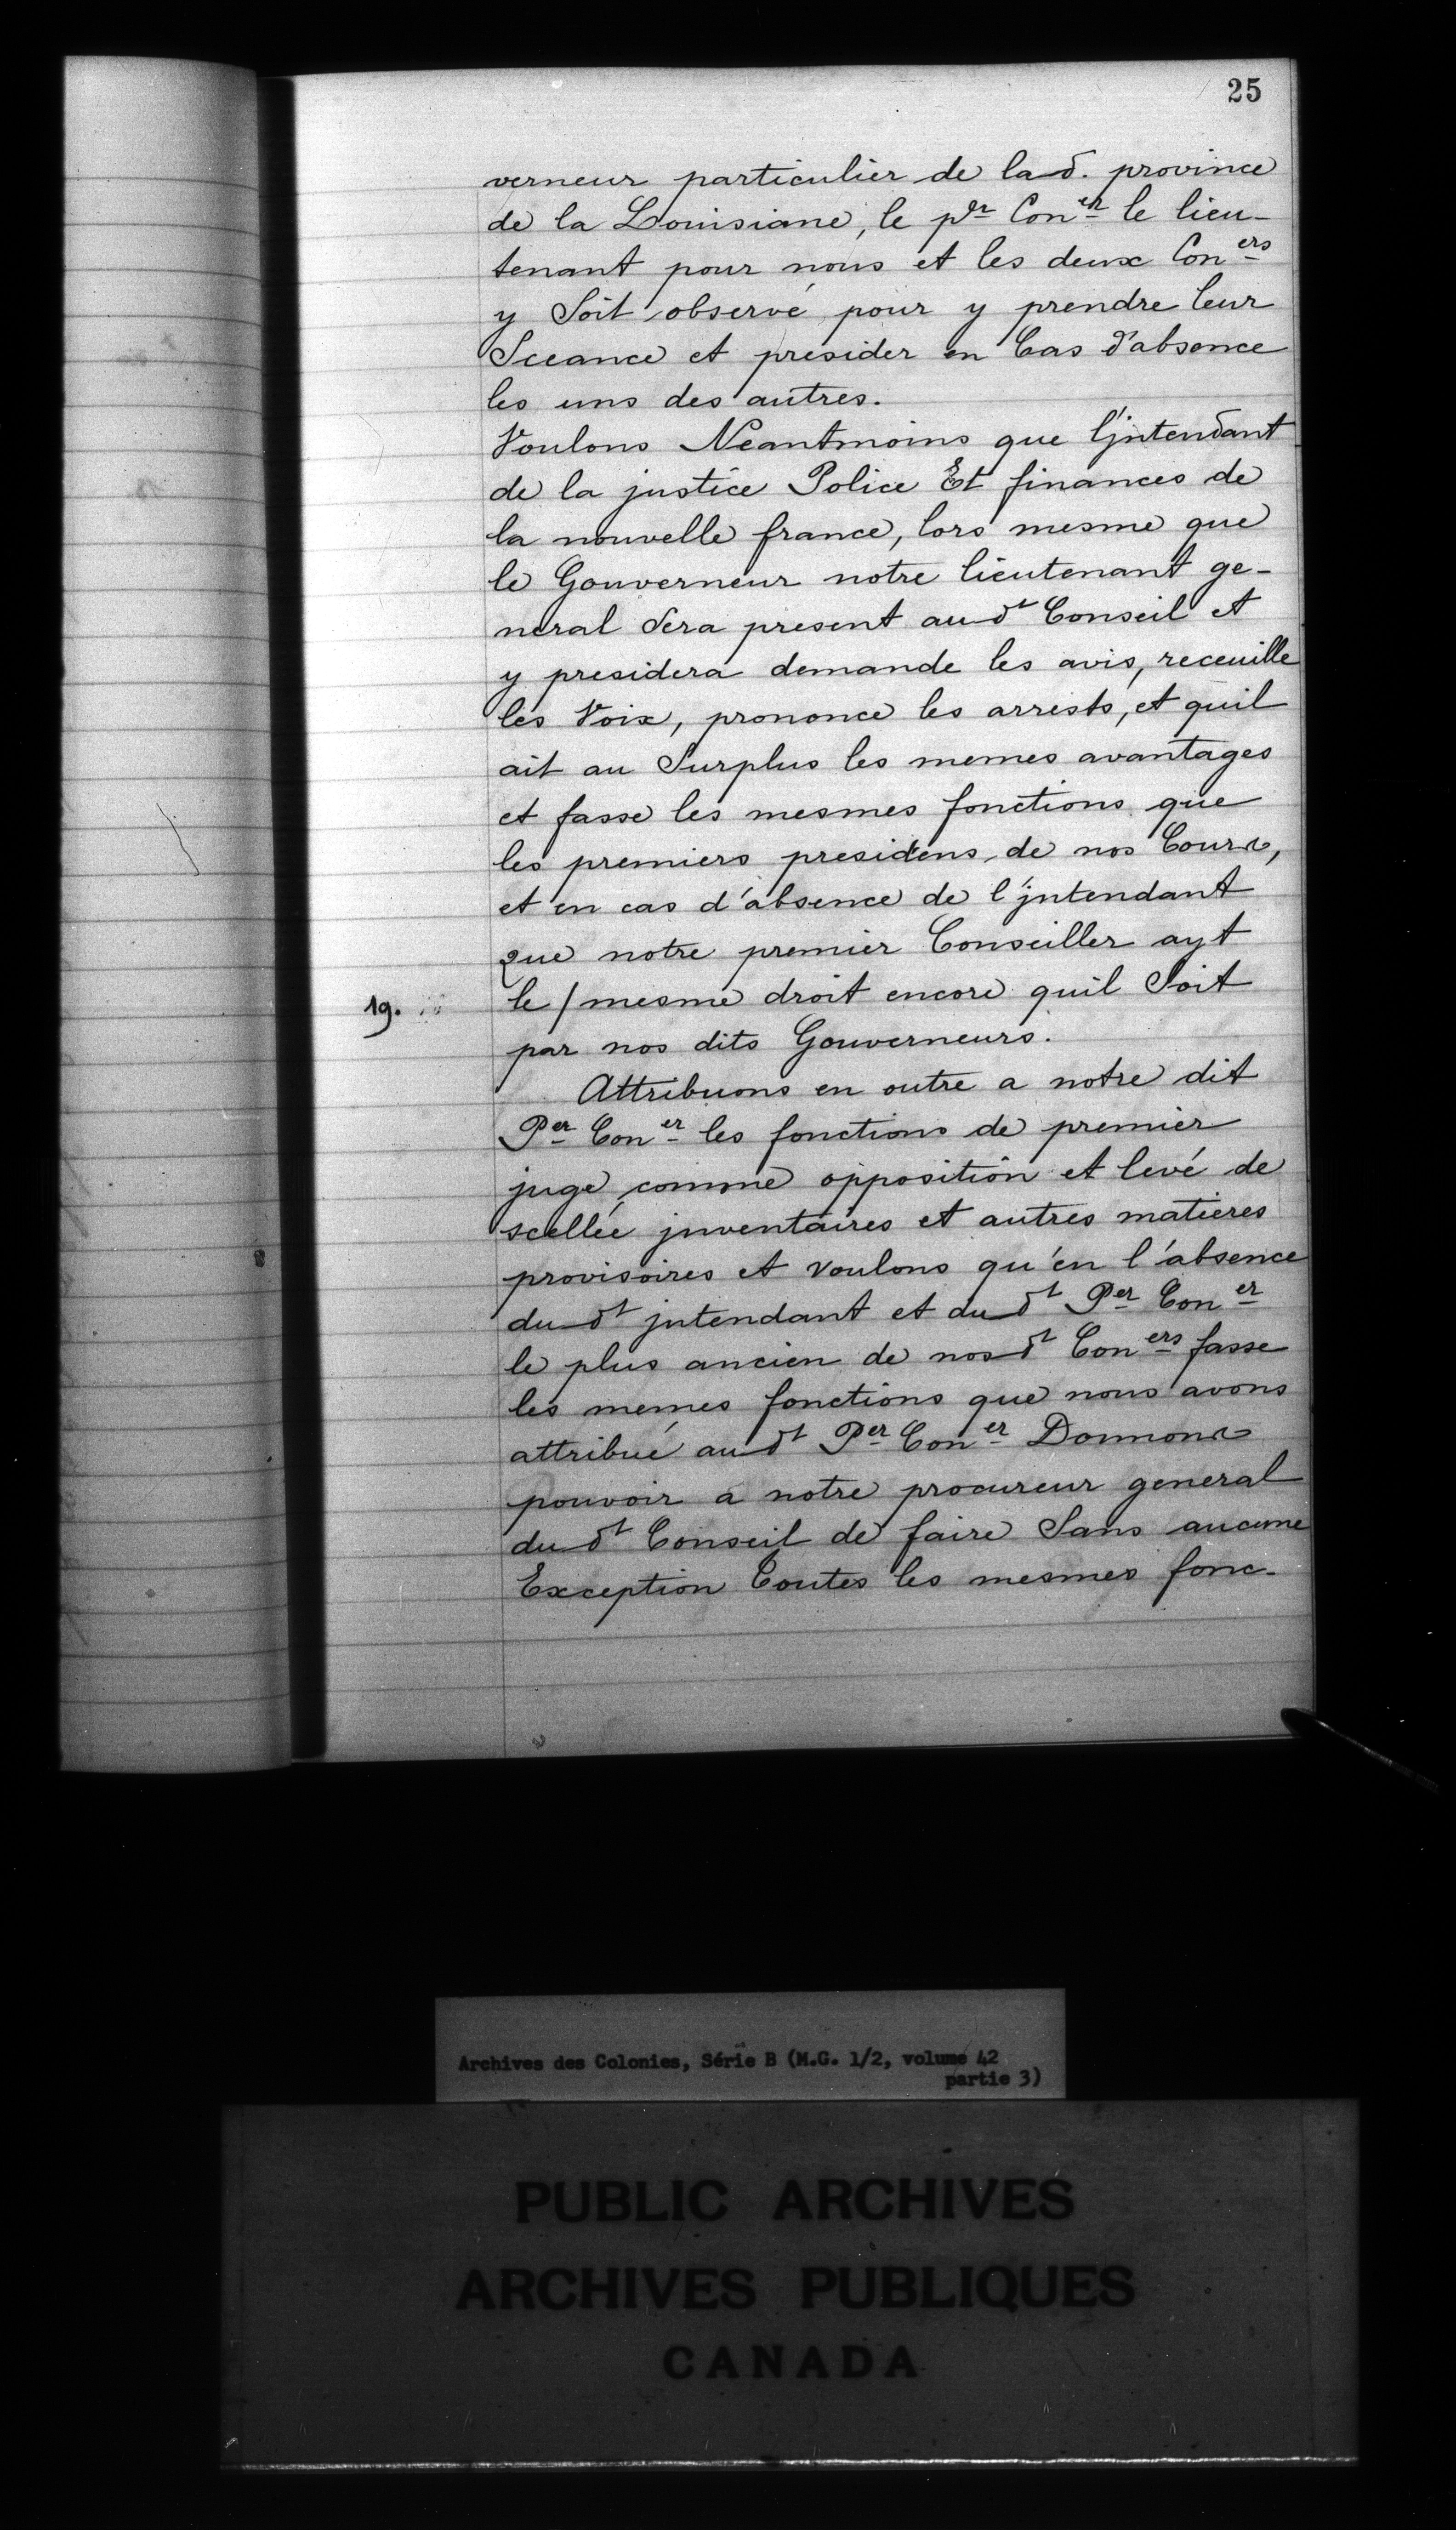 25
verneur particulier de lad. province
de la Louisiane, le pr Coner le lieu-
tenant pour nous et les deux Coners
y Soit observé pour y prendre leur
Sceance et presider en Cas d'absence
les uns des autres.
Voulons Neantmoins que l'jntendant
de la justice Police Et finances de
la nouvelle france, lors mesme que
le Gouverneur notre lieutenant ge-
neral Sera present audt Conseil et
y presidera demande les avis, receuille
les Voix, prononce les arrests, et quil
ait au Surplus les memes avantages
et fasse les mesmes fonctions que
les premiers presidens de nos Cours,
et en cas d'absence de l'jntendant
que notre premier Conseiller ayt
19. le / mesme droit encore quil Soit
par nos dits Gouverneurs.
Attribuons en outre a notre dit
Per Coner les fonctions de premier
juge comme opposition et levé de
scellée jnventaires et autres matieres
provisoires et voulons qu'en l'absence
du dt jntendant et du dt Per Coner
le plus ancien de nosdt Coners fasse
les memes fonctions que nous avons
attribué audt Per Coner Donnons
pouvoir a notre procureur general
dudt Conseil de faire Sans aucune
Exception Toutes les mesmes fonc-
Archives des Colonies, Série B (M.G. 1/2, volume 42
partie 3)
PUBLIC ARCHIVES
ARCHIVES PUBLIQUES
CANADA